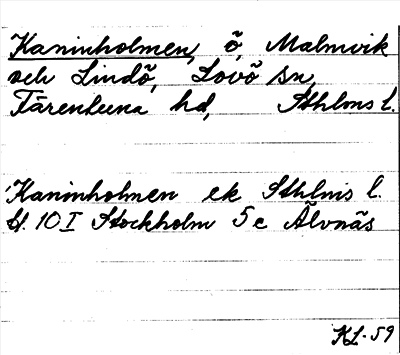 Kaninholmen, ö, Malmvik
och Lindö, Lovö sn,
Färentuna hd, Sthlms l.
Kaninholmen ek Sthlms l.
bl. 10 I Stockholm 5 c Älvnäs
KL-59